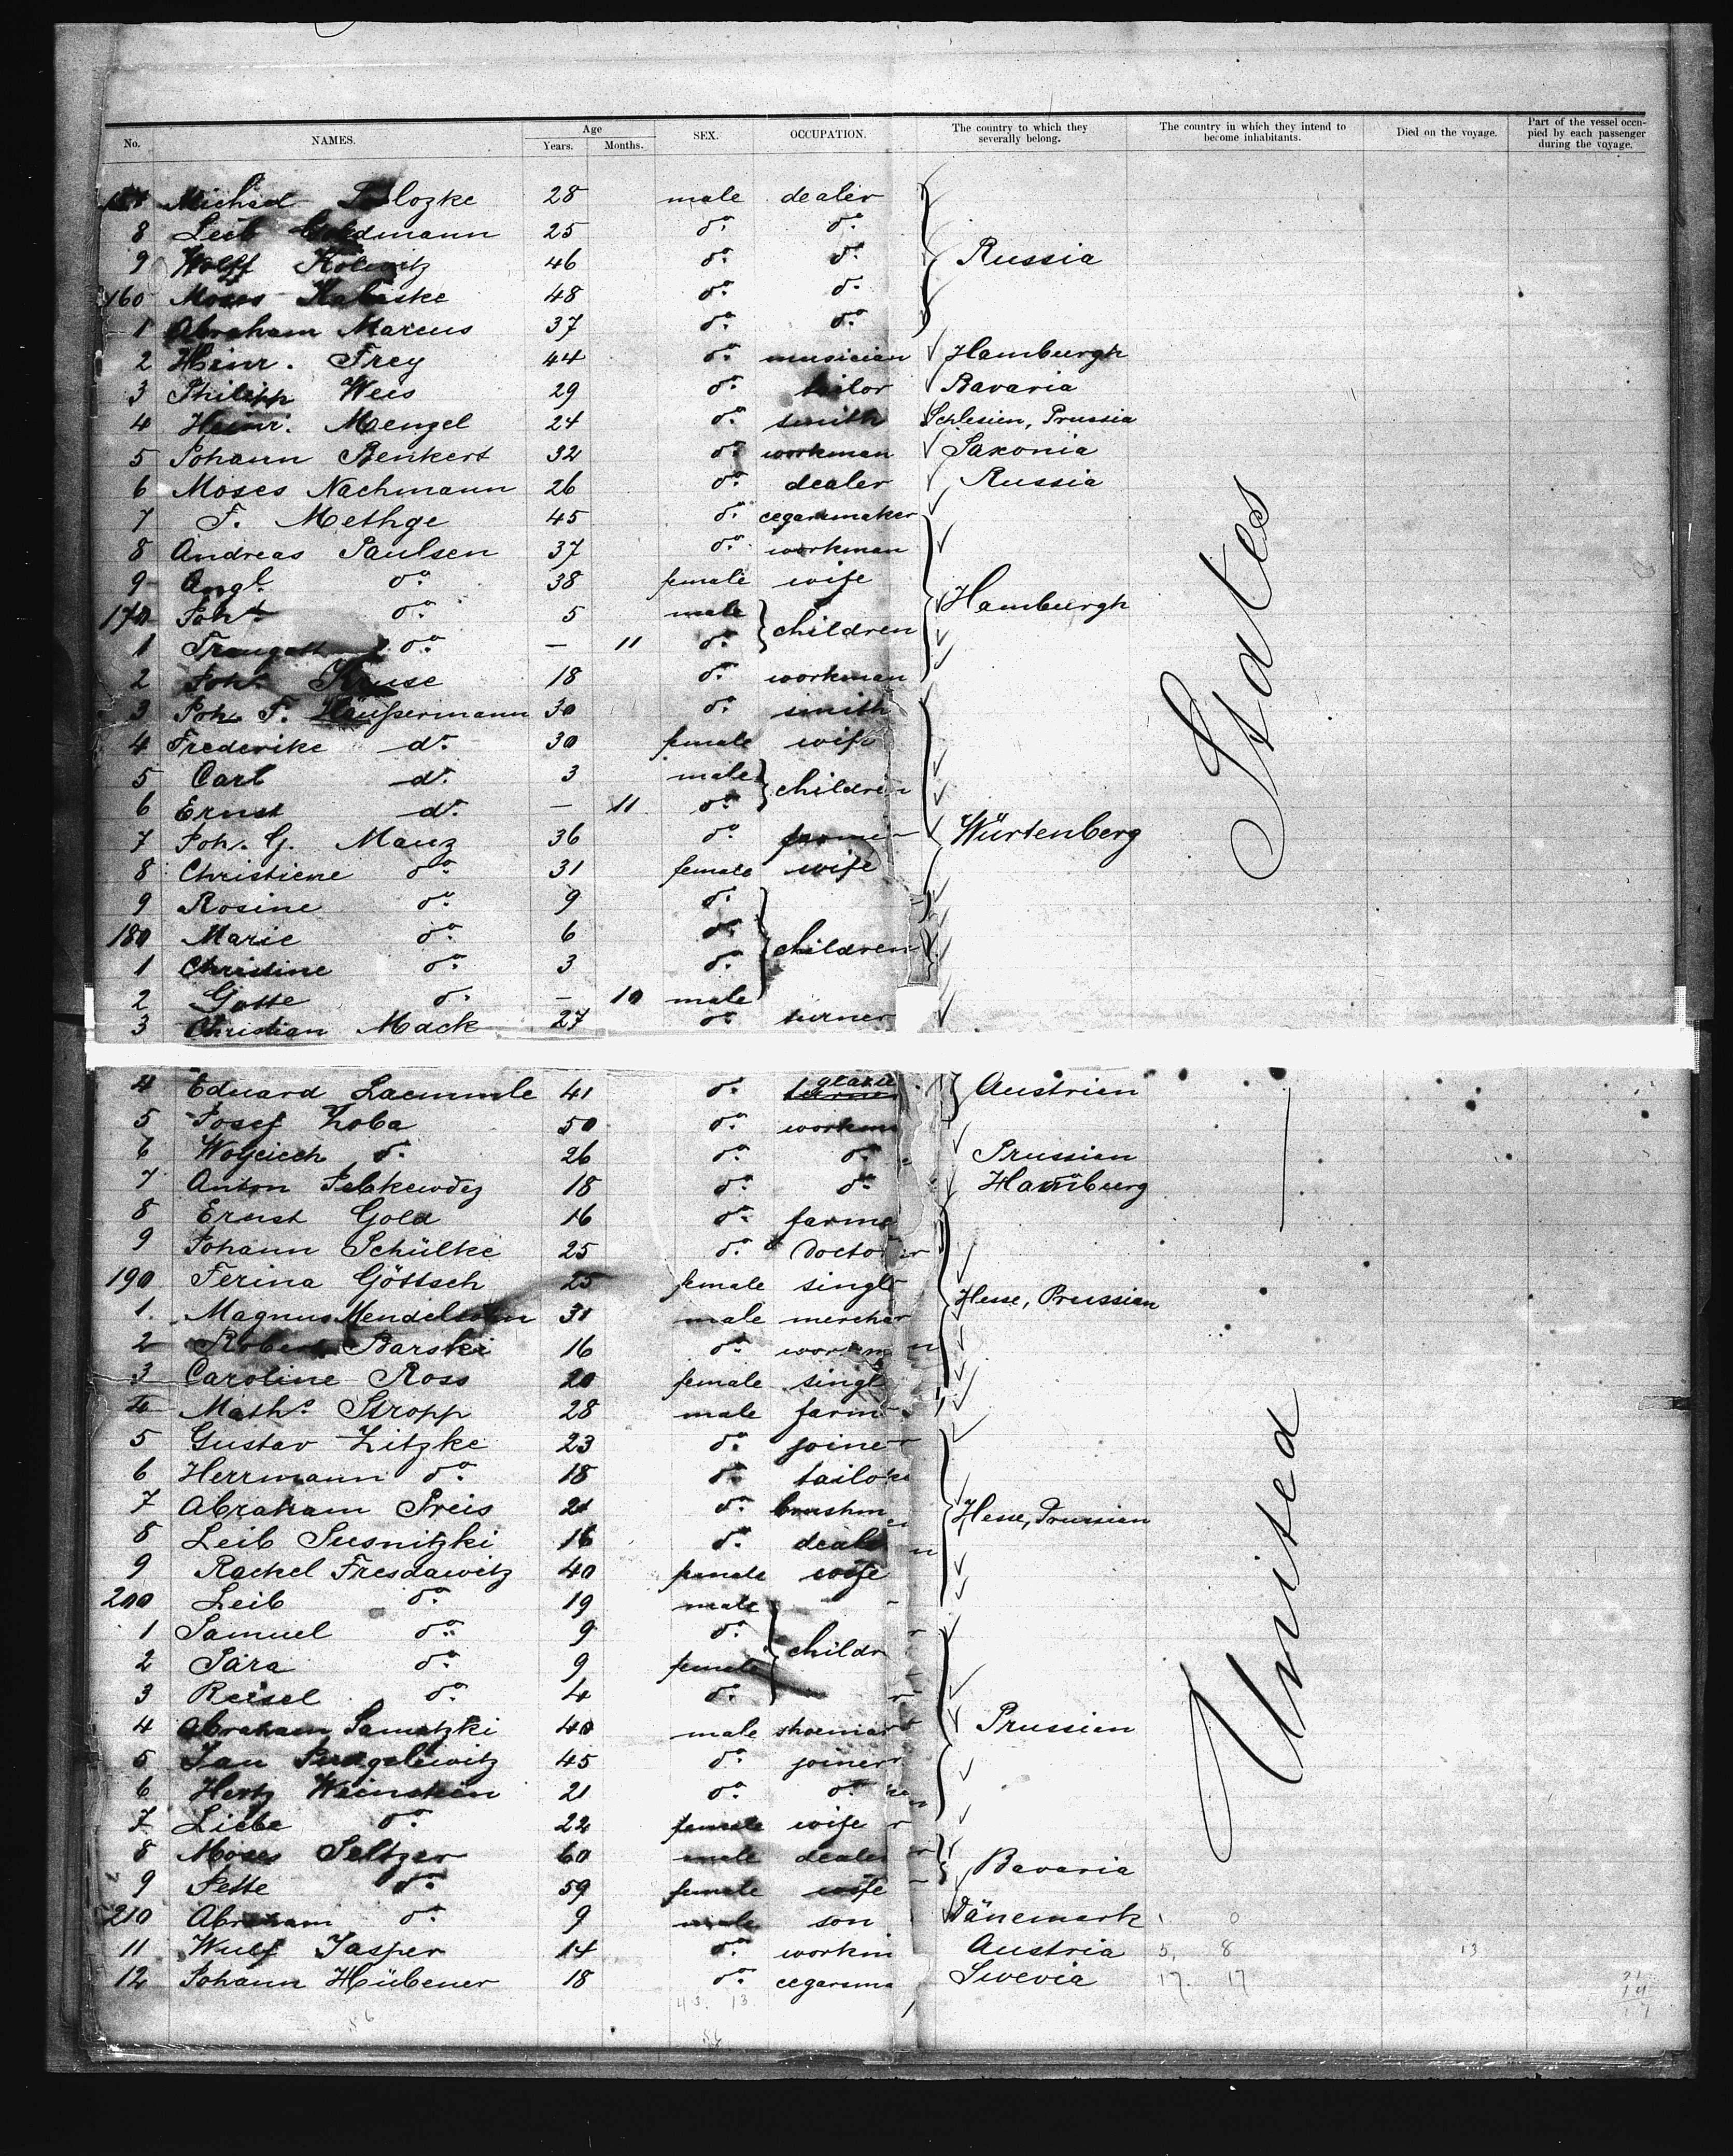 No. NAMES. Age Years. Months. SEX. OCCUPATION. The country to which they severally belong. The country in which they intend to become inhabitants. Died on the voyage. Part of the vessel occupied by each passenger during the voyage.
Michael 28 male dealer
8 Leib Goldmann 25 do. do.
9 Wolff 46 do. do. Russia
160 Moses 48 do. do.
1 Abraham Marcus 37 do. do.
2 Heinr. Frey 44 do. musician Hamburgh
3 Philipp Wees 29 do. tailor Bavaria
4 Heinr. Mengel 24 do. smith Schlesien, Prussia
5 Johann Benkert 32 do. workman Saxonia
6 Moses Nachmann 26 do. dealer Russia
7 F. Methge 45 do. cegarsmaker
8 Andreas Paulsen 37 do. workman
9 Angl. do. 38 female wife Hamburgh
170 Joh. do. 5 male children
1 Traugott do. — 11 do.
2 Joh. Kruse 18 do. workman
3 Joh. F. Häußermann 30 do. smith
4 Frederike do. 30 female wife
5 Carl do. 3 male children
6 Ernst do. — 11 do.
7 Joh. G. Manz 36 do. farmer Würtenberg
8 Christiene do. 31 female wife
9 Rosine do. 9 do.
180 Marie do. 6 do. children
1 Christine do. 3 do.
2 Gotte do. — 10 male
3 Christian Mack 27 do. turner
4 Eduard Laemmle 41 do. Austrien
5 Josef Zoba 50 do. workma
6 Woyciech do. 26 do. do. Prussien
7 Anton 18 do. do. Hamburg
8 Ernst Gold 16 do. farme
9 Johann Schülke 25 do. Doctor
190 Ferina Göttsch 25 female single
1. Magnus Mendelsohn 31 male merchan
2 Robert Barski 16 do. workm
3 Caroline Ross 20 female singl
4 Math. Stropp 28 male farm
5 Gustav Zitzke 23 do. joiner
6 Herrmann do. 18 do. tailor
7 Abraham Preis 21 do. brushm
8 Leib Susnitzki 16 do. deale
9 Rachel Fresdawitz 40 female wife
200 Leib do. 19 male
1 Samuel do. 9 do. childr
2 Sara do. 9 female
3 Reisel do. 4 do.
4 Abraham Samatzki 40 male shoemar Prussien
5 Jan 45 do. joiner
6 Hertz Weinstein 21 do. do.
7 Liebe do. 22 female wife
8 Moses Seltzer 60 male dealer Bavaria
9 Jette do. 59 female wife
210 Abraham do. 9 male son Dänemark
11 Wulf Jasper 14 do. workm Austria
12 Johann Hübener 18 do. cegarsma Swevia
Hesse, Prussien
Hesse, Prussien
United States